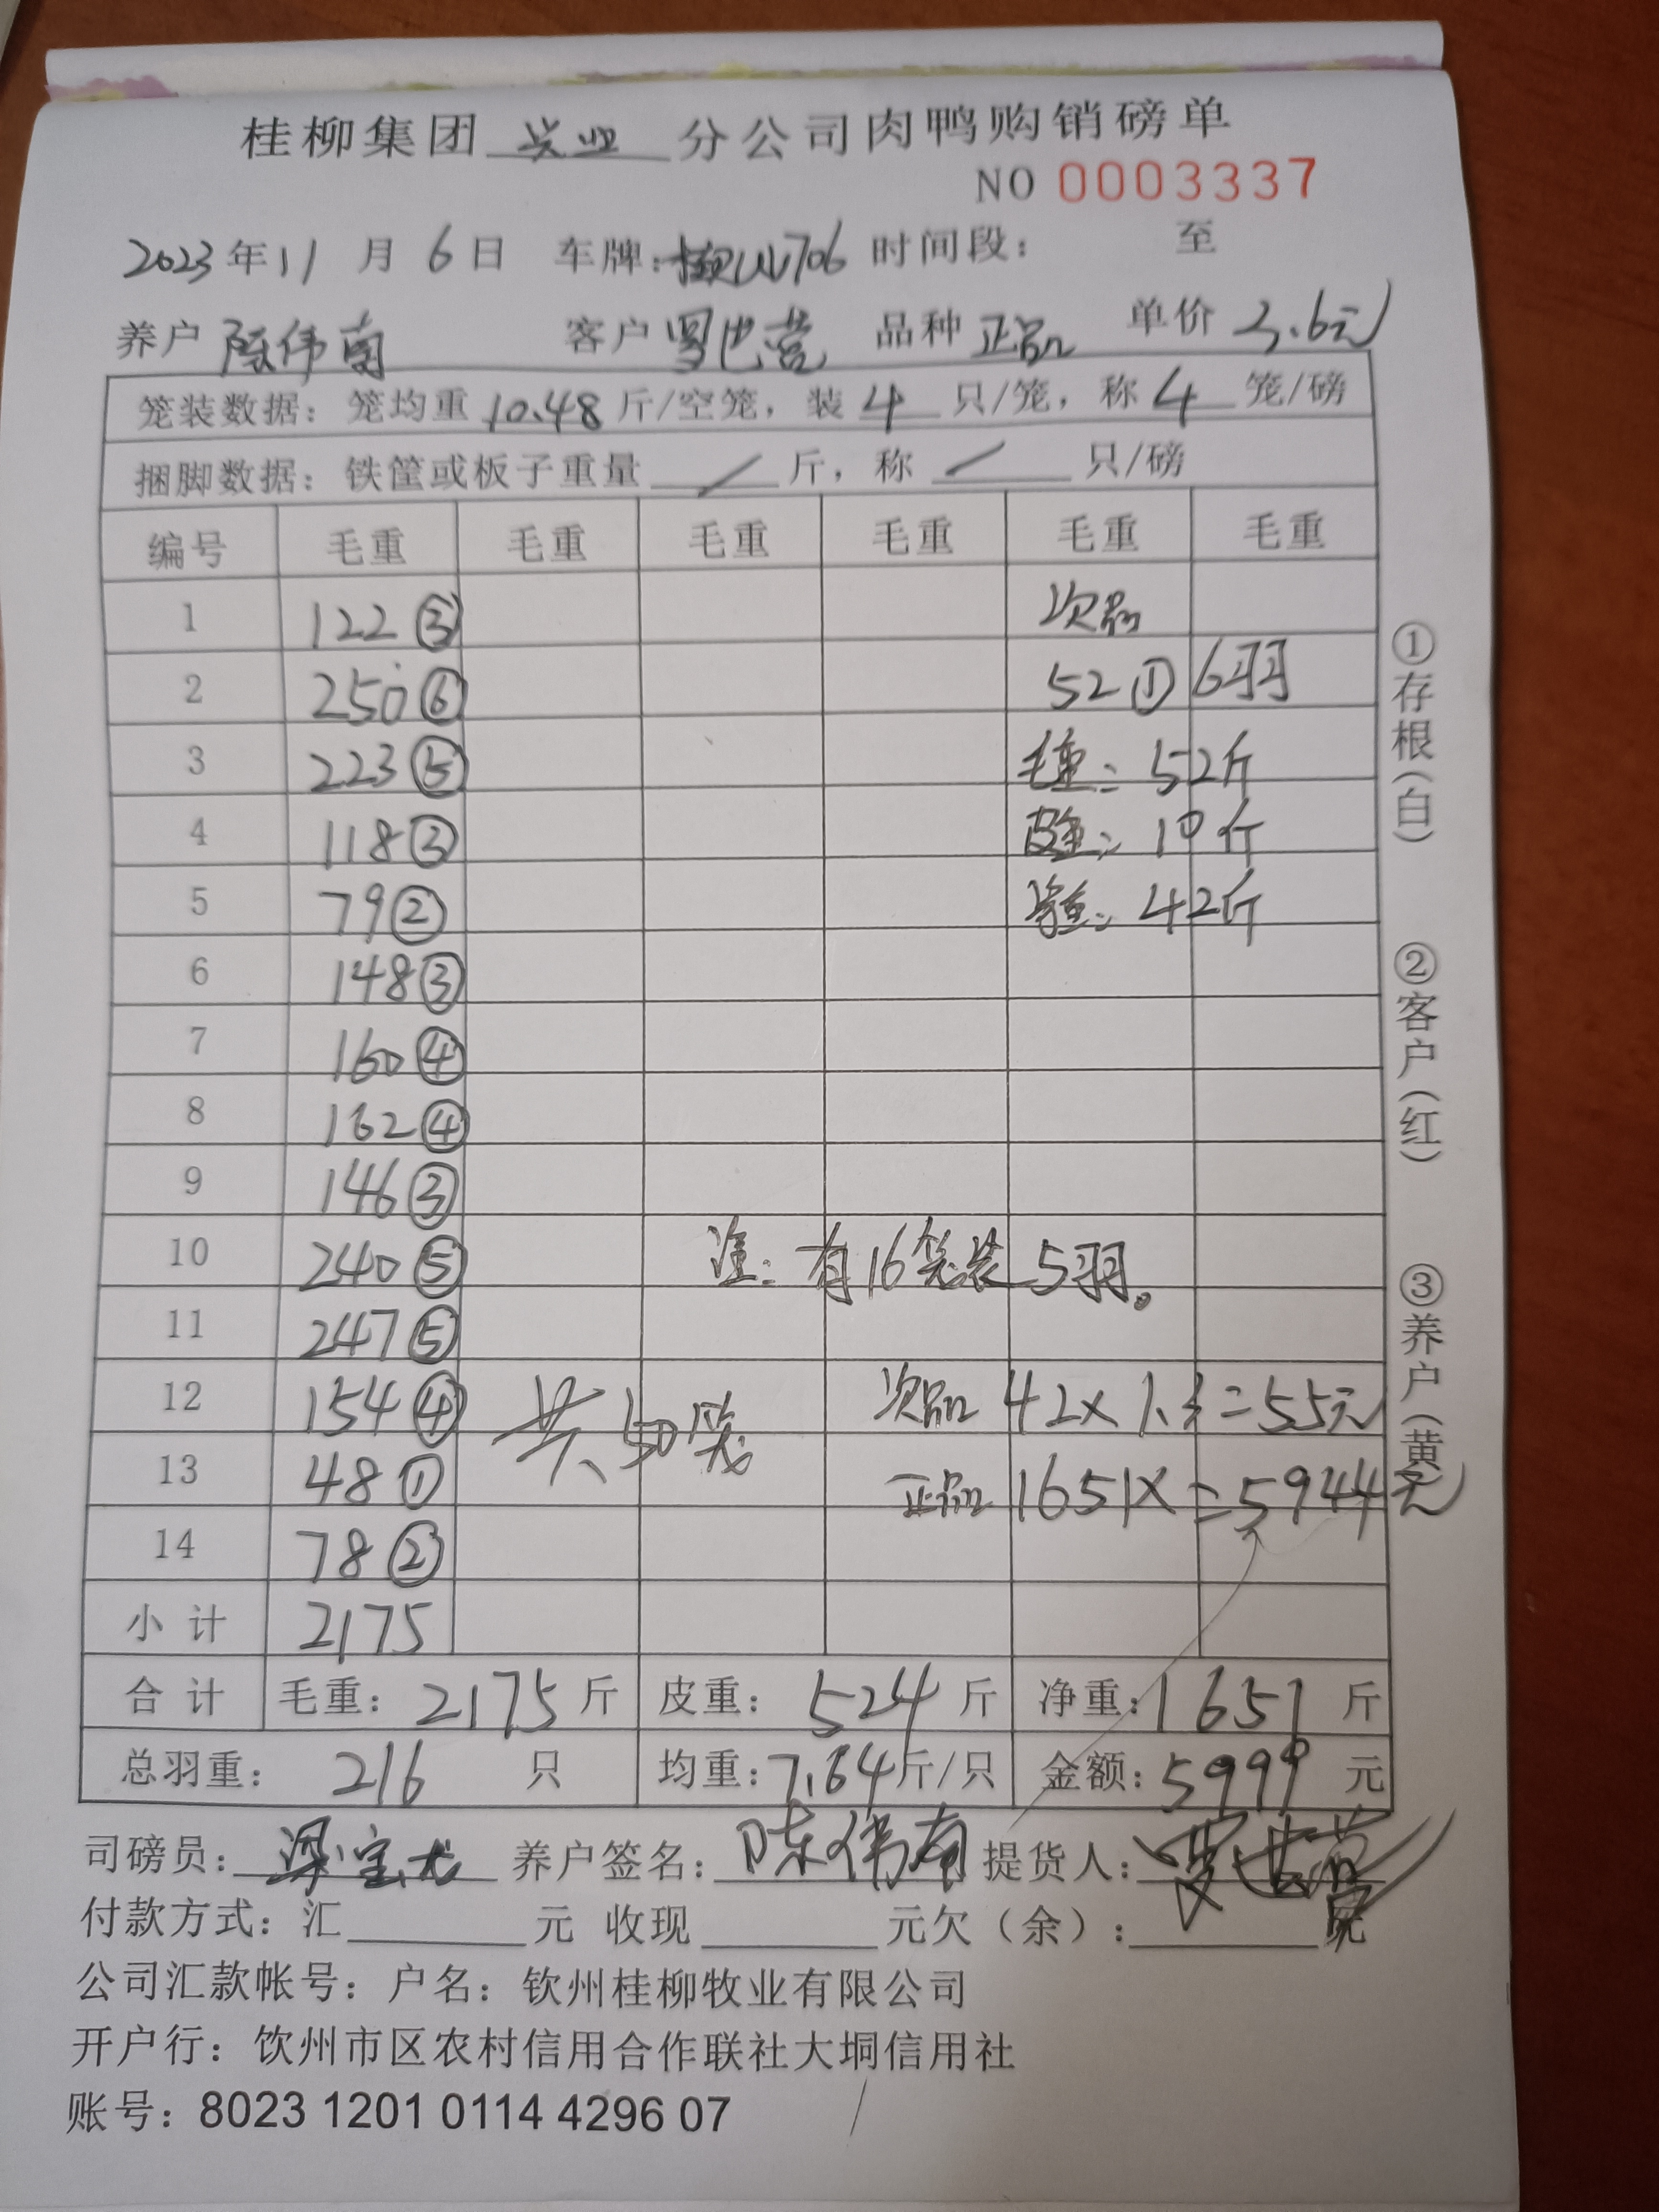 桂柳集团 兴业 分公司肉鸭购销磅单
NO 0003337
2023年11月6日 车牌: 706 时间段: 至
养户 陈伟南 客户 罗世营 品种 正品 单价 3.6元
笼装数据: 笼均重 10.48 斤/空笼, 装 4 只/笼, 称 4 笼/磅
捆脚数据: 铁筐或板子重量 / 斤, 称 / 只/磅
编号 毛重 毛重 毛重 毛重 毛重 毛重
1 122③ 次品
2 250⑥ 52① 6羽
3 223⑤ 毛重: 52斤
4 118③ 皮重: 10斤
5 79② 净重: 42斤
6 148③
7 160④
8 162④
9 146③
10 240⑤ 注: 有16笼装5羽。
11 247⑤
12 154④ 共50笼 次品 42×1.3=55元
13 48① 正品 1651×=5944元
14 78②
小计 2175
合计 毛重: 2175 斤 皮重: 524 斤 净重: 1651 斤
总羽重: 216 只 均重: 7.64斤/只 金额: 5999 元
司磅员: 梁宝龙 养户签名: 陈伟南 提货人: 罗世营
付款方式: 汇 元 收现 元欠(余): 元
公司汇款帐号: 户名: 钦州桂柳牧业有限公司
开户行: 钦州市区农村信用合作联社大垌信用社
账号: 8023 1201 0114 4296 07
①存根(白) ②客户(红) ③养户(黄)